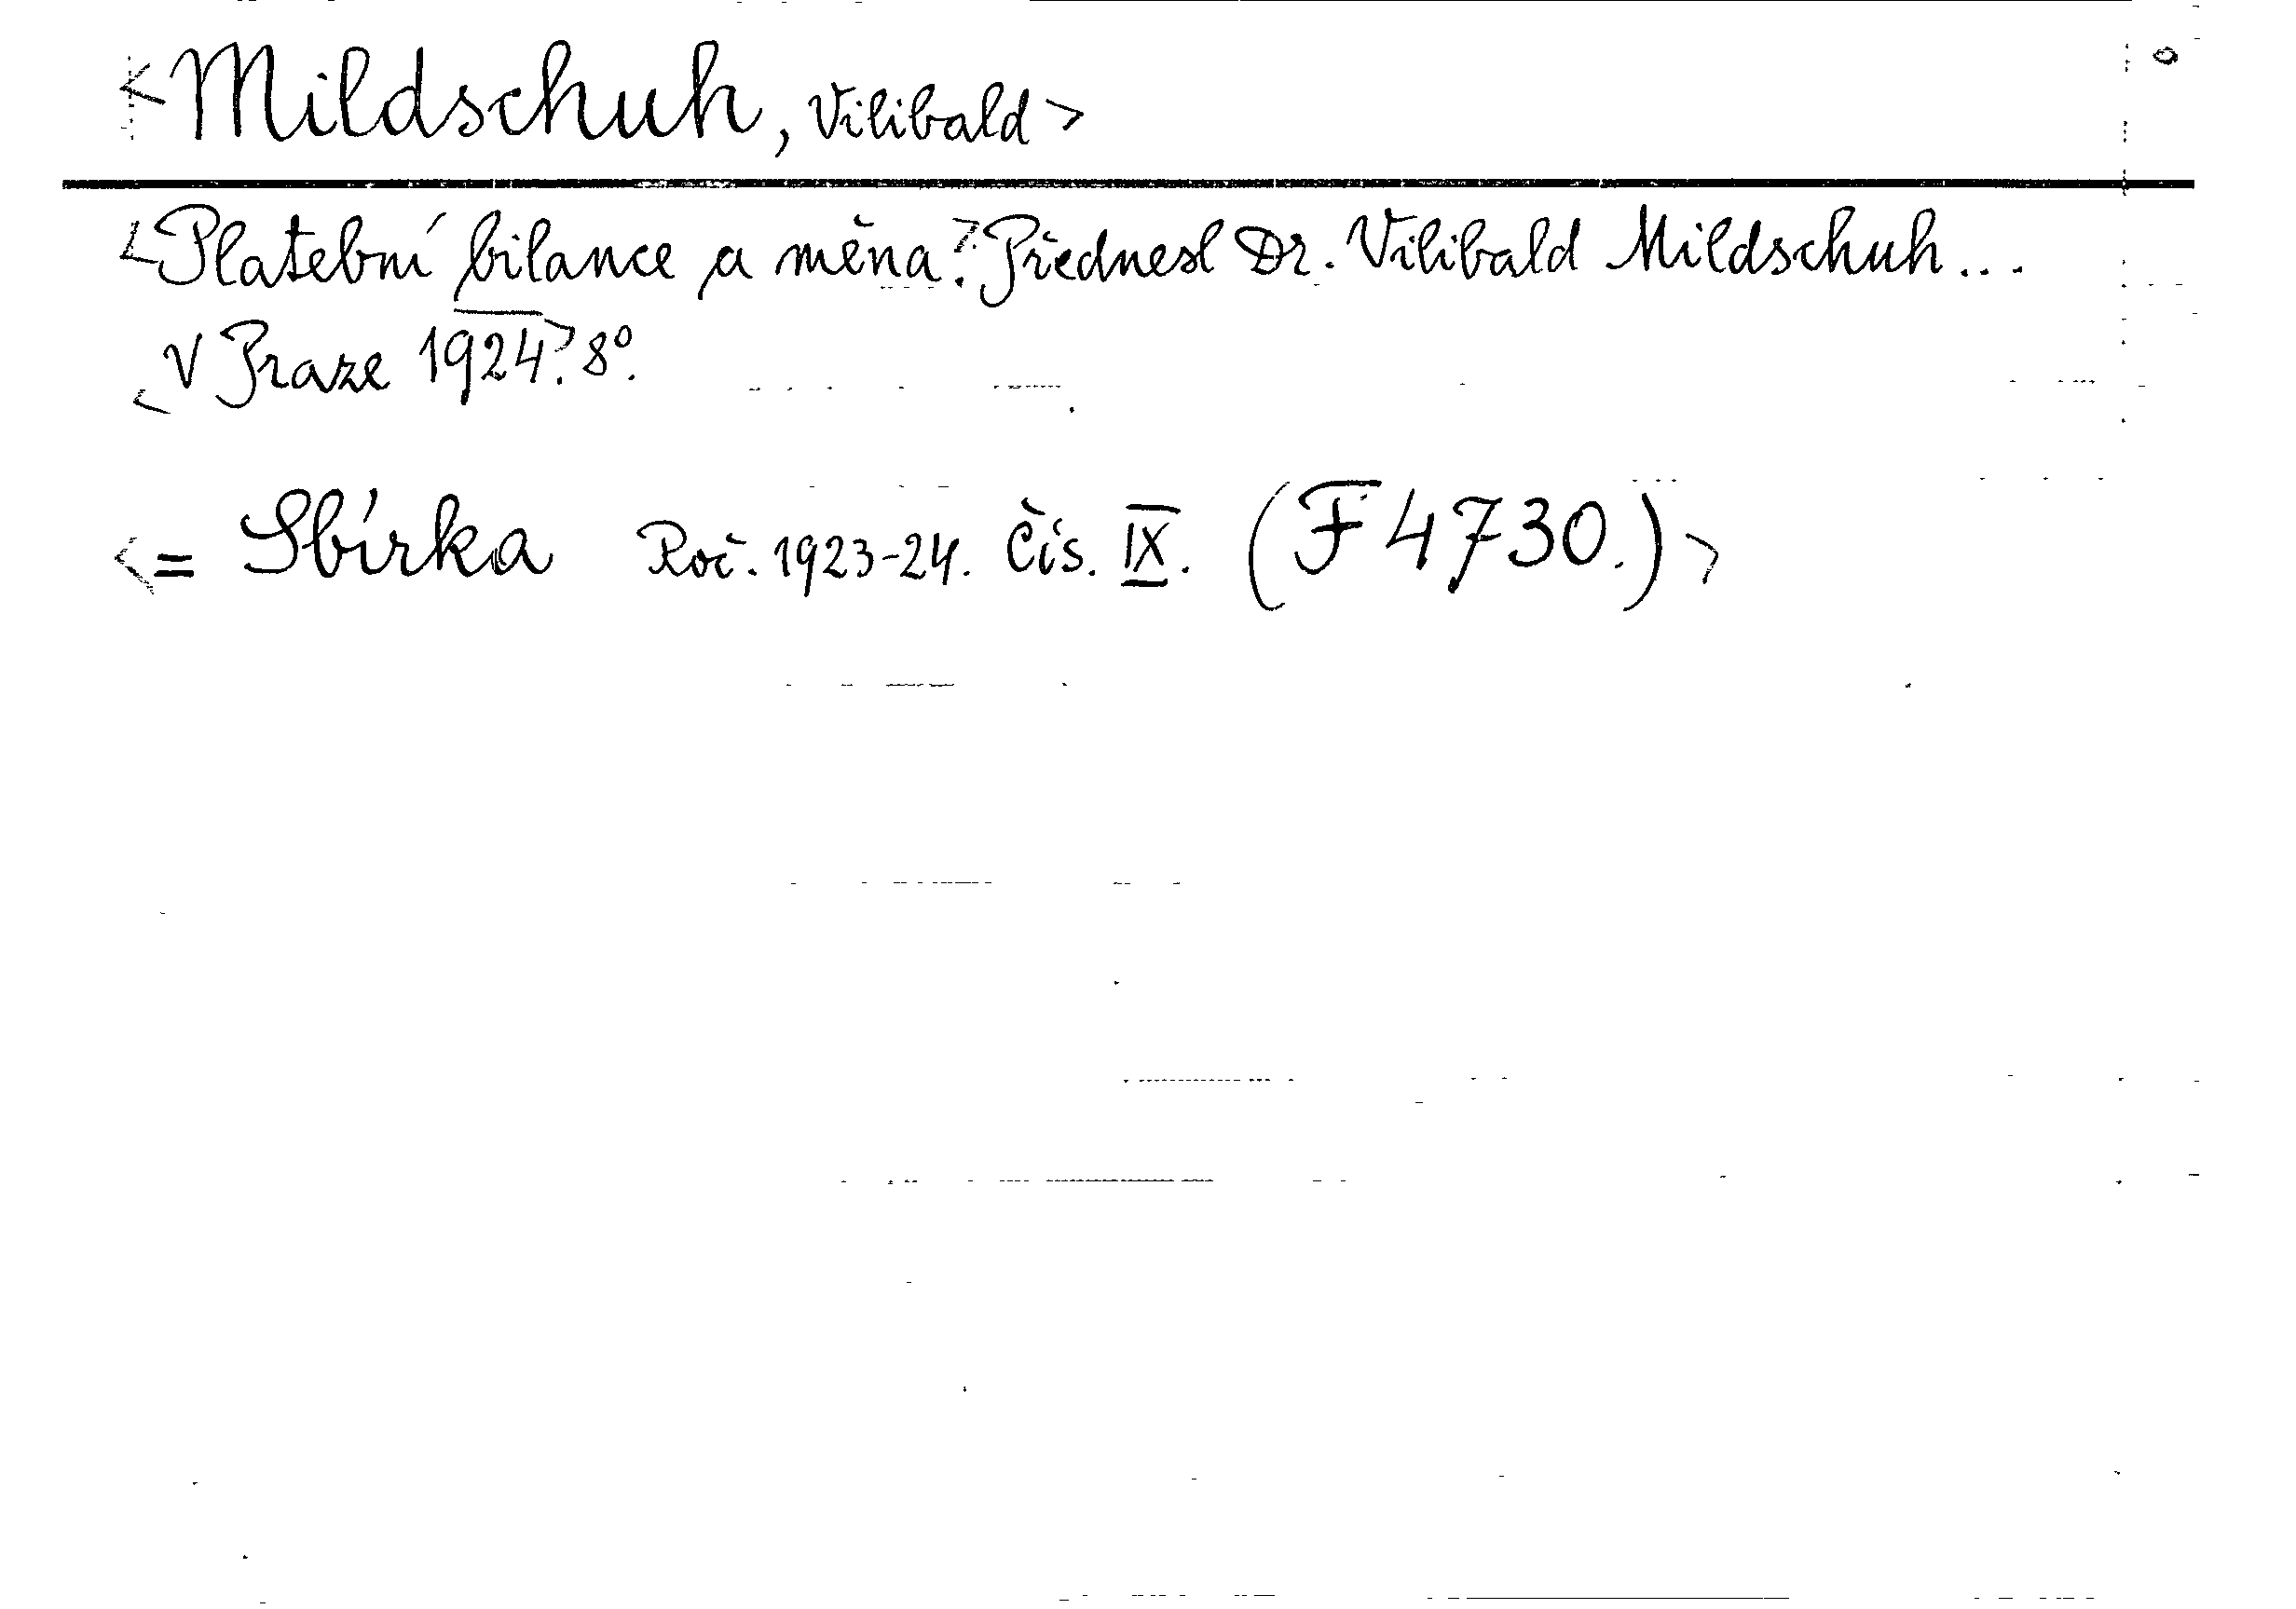 <Mildschuh, Vilibald>
<Platební bilance a měna>. Přednesl Dr. Vilibald Mildschuh...
<V Praze 1924>. 8°.
<= Sbírka Roč. 1923-24. Čís. IX. (F 4730.)>